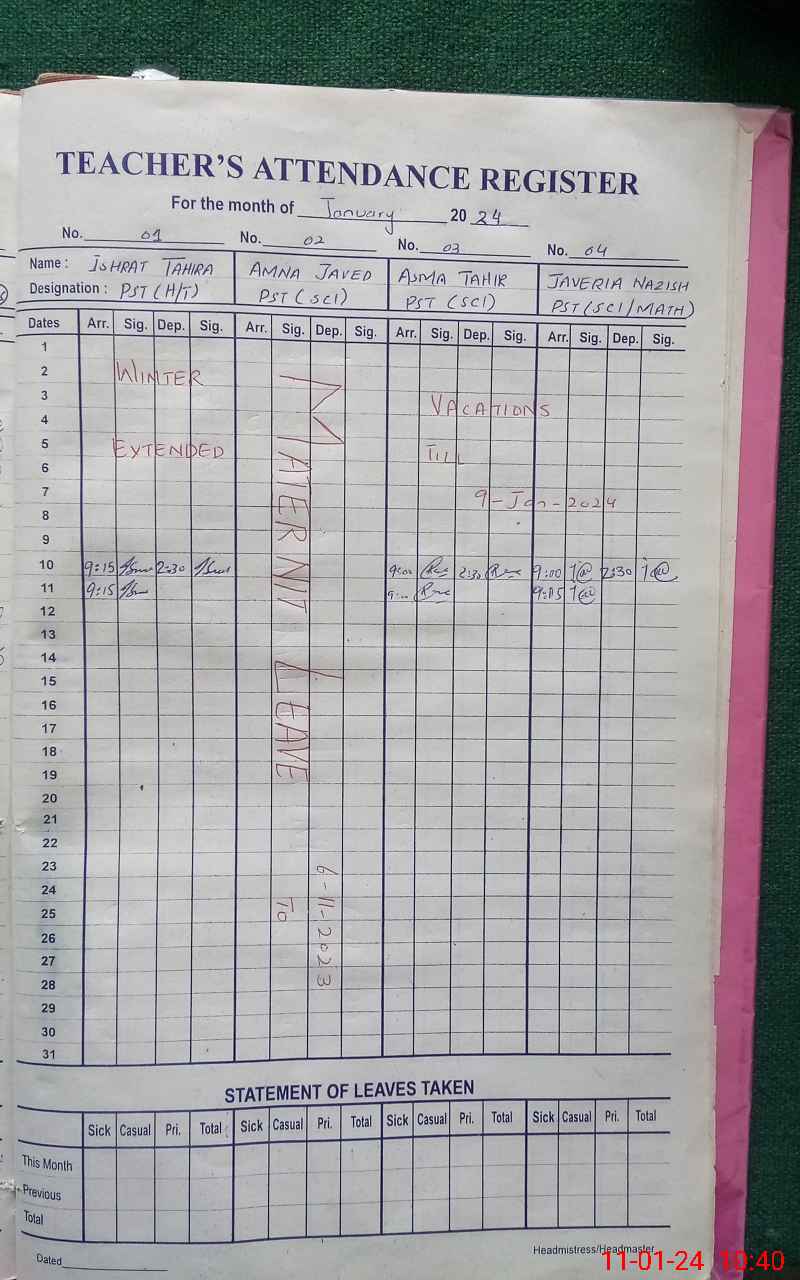 TEACHER'S ATTENDANCE REGISTER
For the month of January 20 24
No. 01 No. 02 No. 03 No. 04
Name : ISHRAT TAHIRA AMNA JAVED ASMA TAHIR JAVERIA NAZISH
Designation : PST (H/T) PST (SCI) PST (SCI) PST (SCI/MATH)
Dates Arr. Sig. Dep. Sig. Arr. Sig. Dep. Sig. Arr. Sig. Dep. Sig. Arr. Sig. Dep. Sig.
1
2 WINTER
3 VACATIONS
4
5 EXTENDED TILL
6
7 9-Jan-2024
8
9
10 9:15 2:30 9:00 2:30 9:00 2:30
11 9:15 9:00
12
13
14
15
16
17
18
19
20
21
22
23
24
25
26
27
28
29
30
31
MATERNIT LEAVE
6-11-2023
To
STATEMENT OF LEAVES TAKEN
Sick Casual Pri. Total Sick Casual Pri. Total Sick Casual Pri. Total Sick Casual Pri. Total
This Month
Previous
Total
Dated
Headmistress/Headmaster
11-01-24 10:40